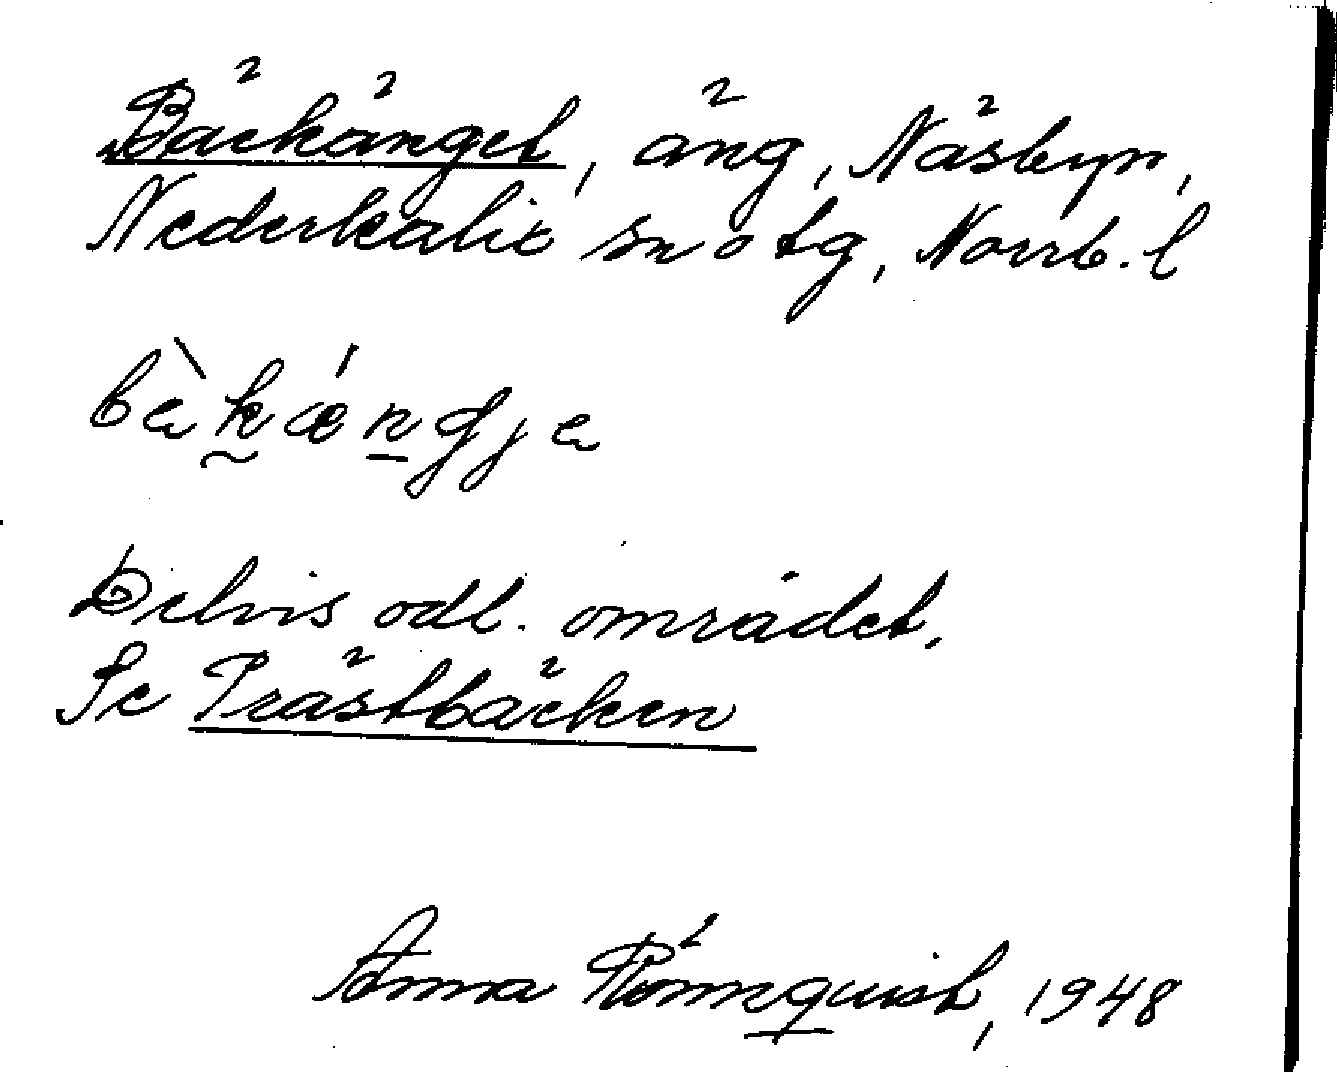 Bäckänget, äng, Näsbyn,
Nederkalix sn o tg, Norrb. l
Delvis odl. området.
Se Prästbäcken
Anna Rönnquist, 1948